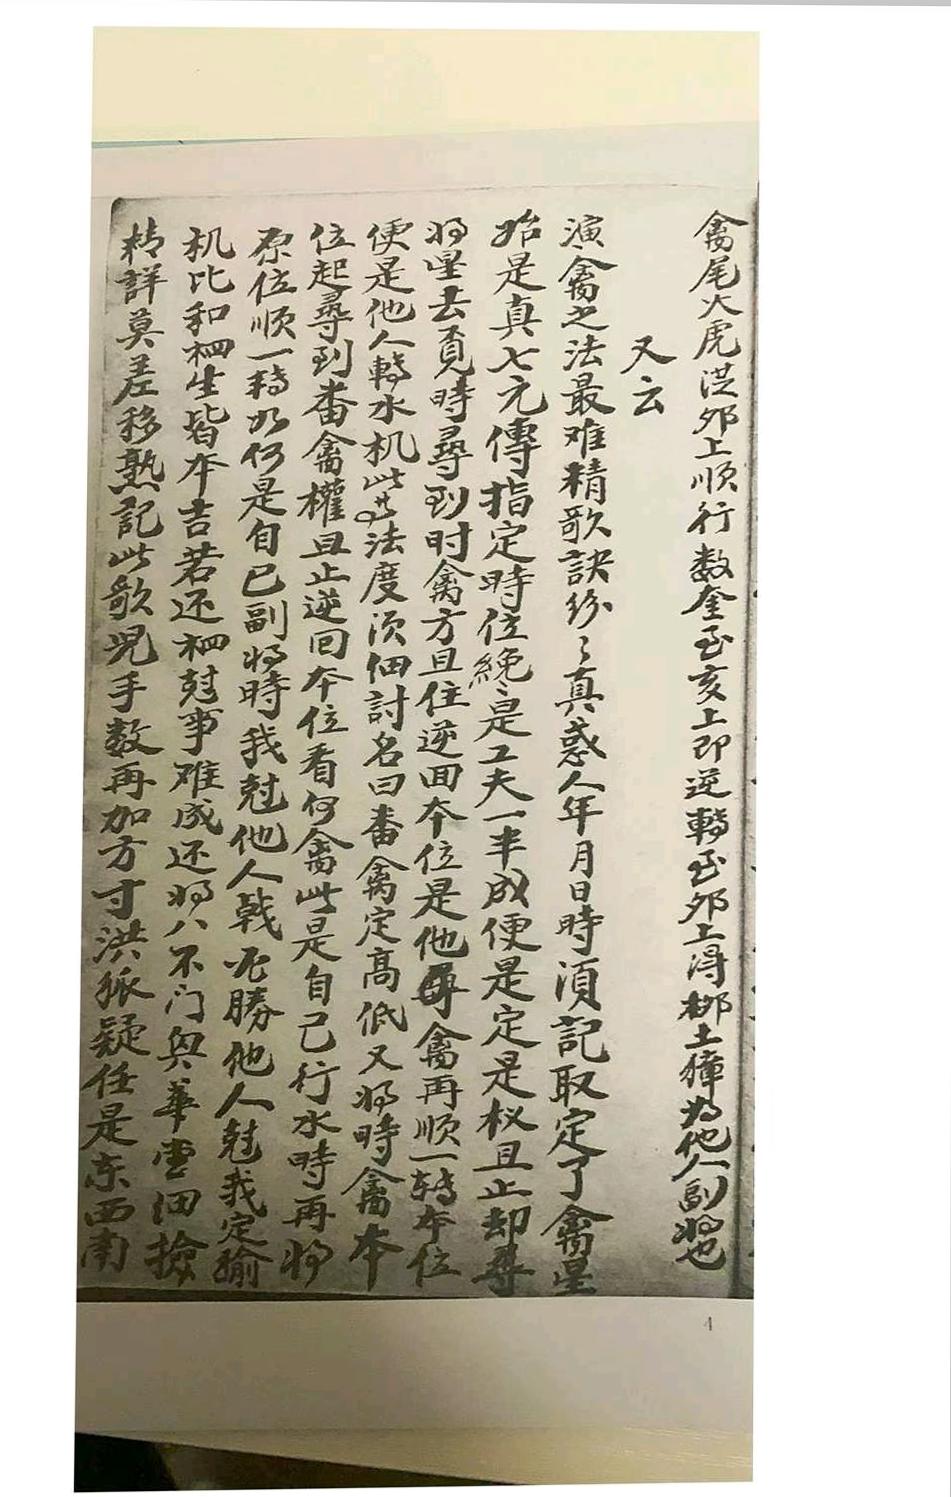 禽尾火虎洪卯上順行数奎至亥上即逆轉至卯上得柳土獐为他人副将也
又云
演禽之法最难精歌訣紛〻真惑人年月日時須記取定了禽星
始是真七元傳指定時位纔是工夫一半成便是定是权且止却尋
将星去覓時尋到时禽方且住逆回本位是他尋禽再順一转本位
便是他人轉水机此其法度須细討名曰番禽定高低又将時禽本
位起尋到番禽權且止逆回本位看何禽此是自己行水時再将
原位順一转如何是自已副将時我尅他人戰必勝他人尅我定输
机比和相生皆本吉若还相尅事难成还将八不门與華堂细撿
精詳莫差移熟記此歌児手数再加方寸洪狐疑任是东西南
4